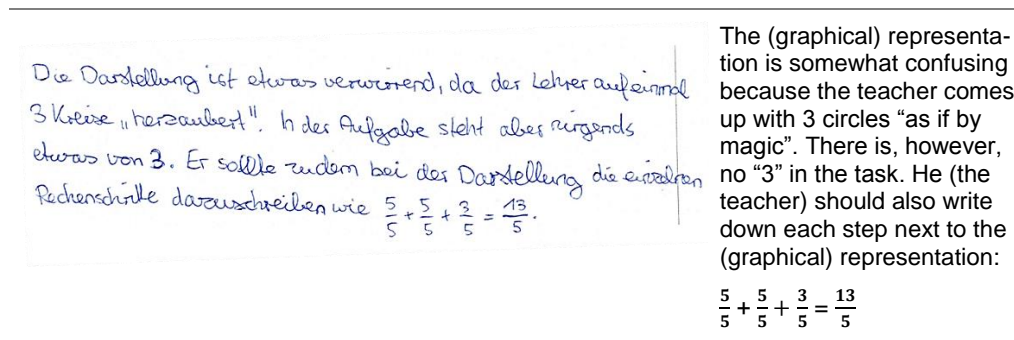 Die Darstellung ist etwas verwirrend, da der Lehrer aufeinmal
3 Kreise „herzaubert". In der Aufgabe steht aber nirgends
etwas von 3. Er sollte zudem bei der Darstellung die einzelnen
Rechenschritte dazuschreiben wie 5/5 + 5/5 + 3/5 = 13/5.
The (graphical) representa-
tion is somewhat confusing
because the teacher comes
up with 3 circles “as if by
magic”. There is, however,
no “3” in the task. He (the
teacher) should also write
down each step next to the
(graphical) representation:
5/5 + 5/5 + 3/5 = 13/5